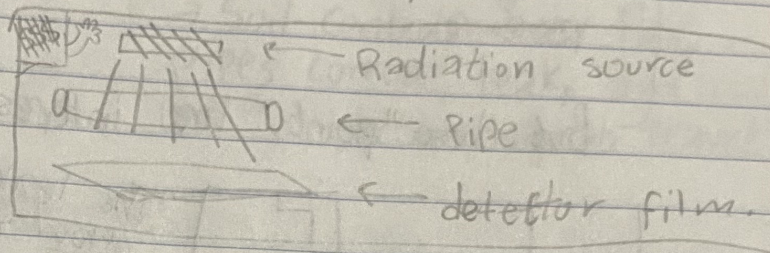 Radiation source
Pipe
detector film.